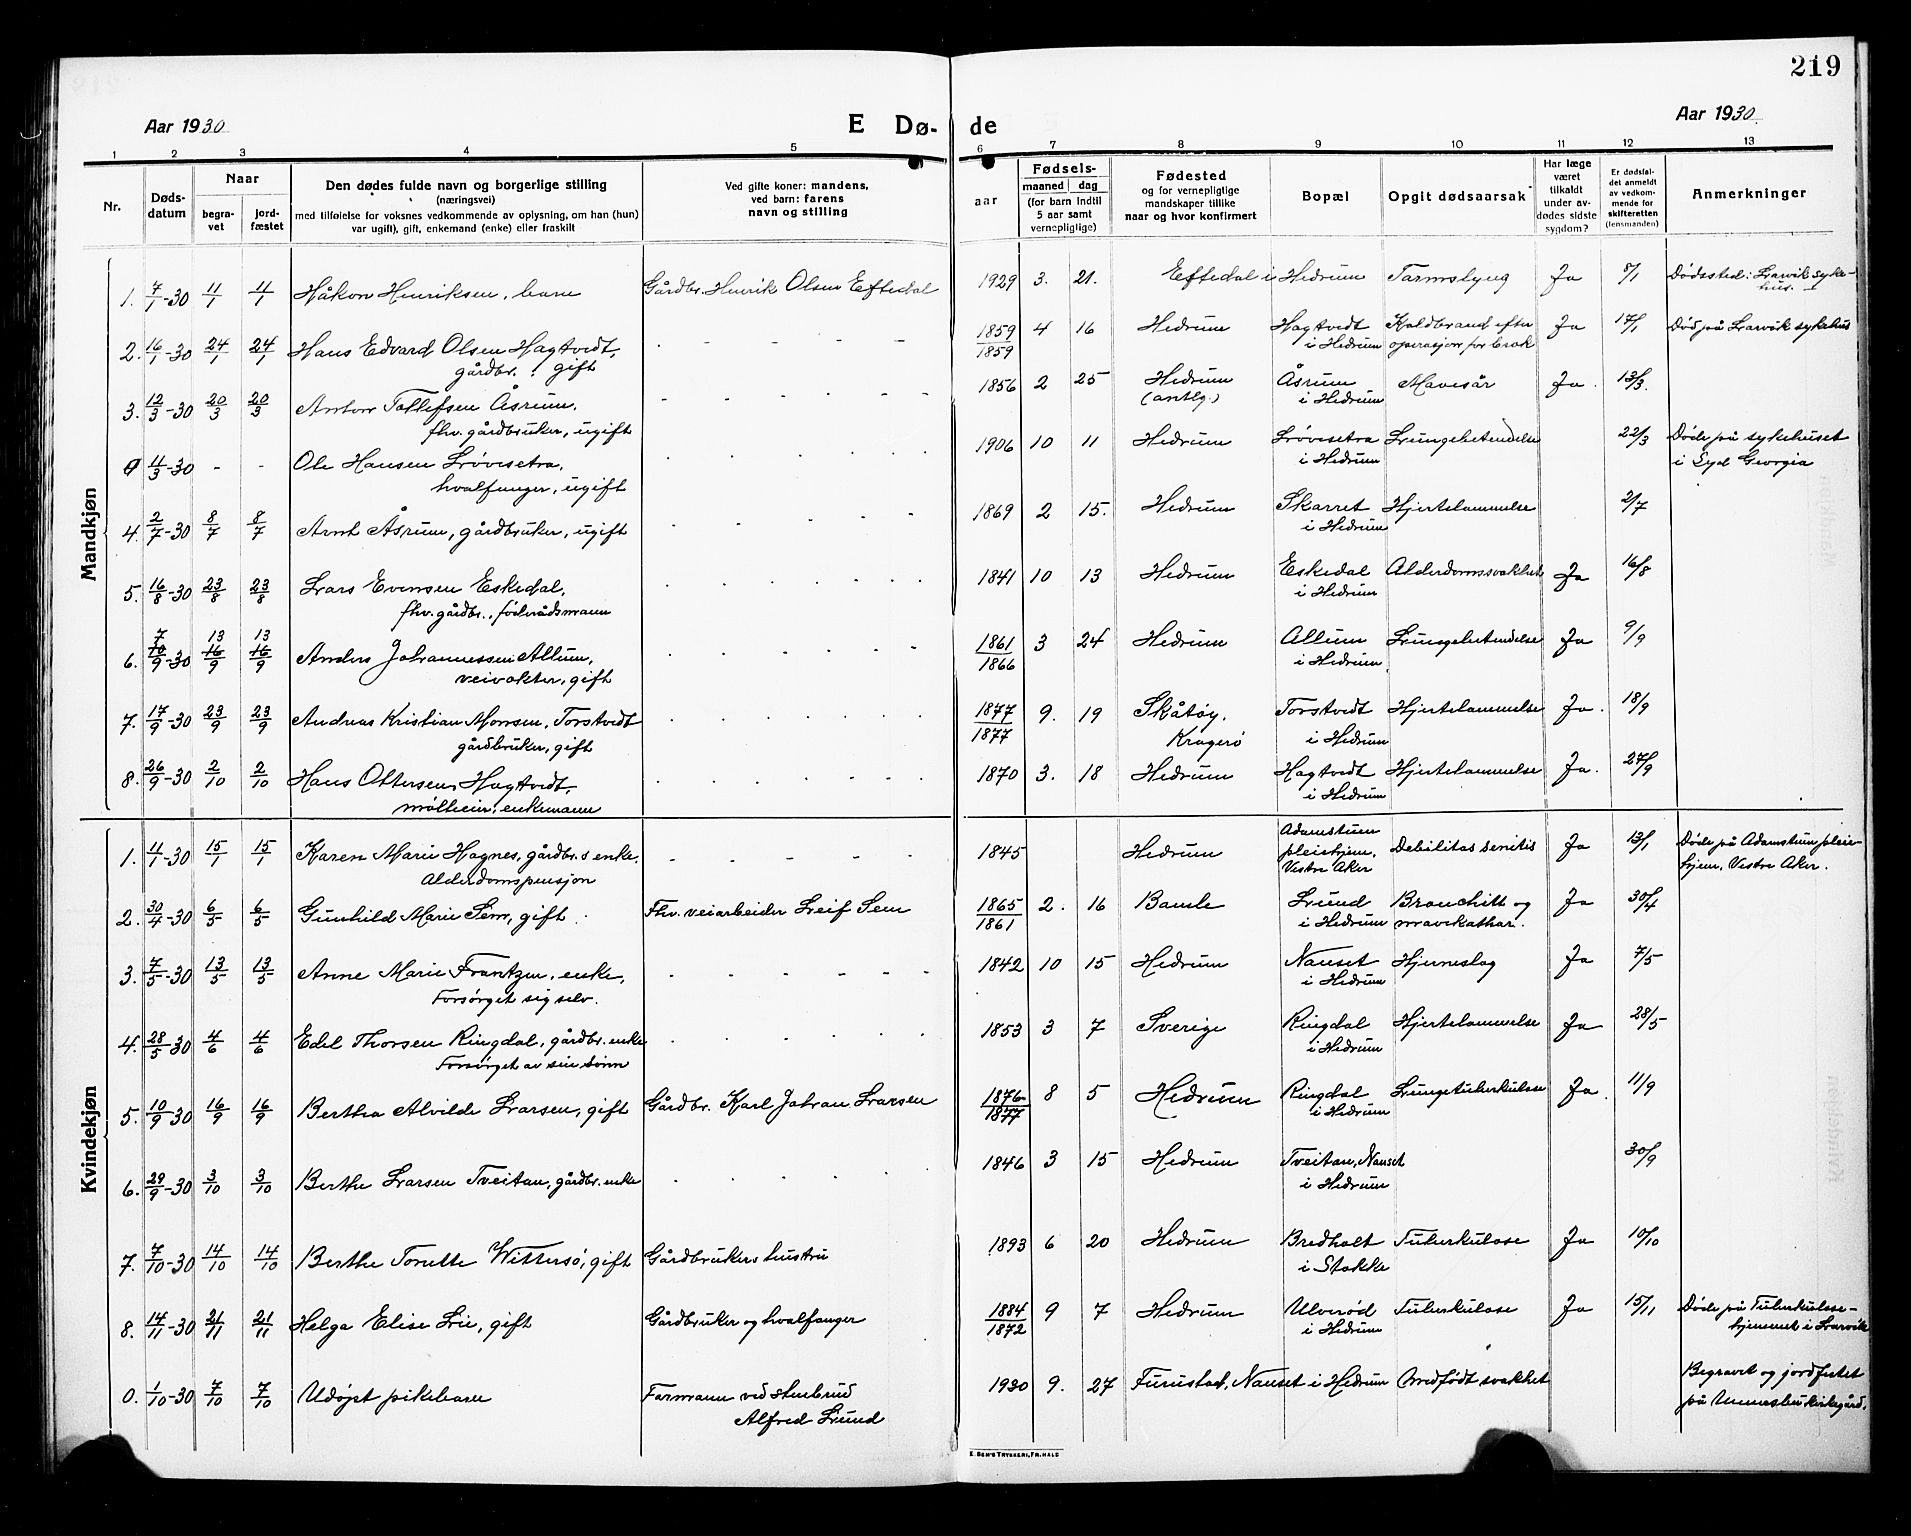 219
Aar 1930
E Dø-
de
Aar 1930.
1 2 3 4 5 6 7 8 9 10 11 12 13
Nr.
Døds-
datum
Naar
begra-
vet
jord-
fæstet
Den dødes fulde navn og borgerlige stilling
(næringsvei)
med tilføielse for voksnes vedkommende av oplysning, om han (hun)
var ugift), gift, enkemand (enke) eller fraskilt
Ved gifte koner: mandens,
ved barn: farens
navn og stilling
aar
Fødsels-
maaned | dag
(for barn indtil
5 aar samt
vernepligtige)
Fødested
og for vernepligtige
mandskaper tillike
naar og hvor konfirmert
Bopæl
Opgit dødsaarsak
Har læge
været
tilkaldt
under av-
dødes sidste
sygdom?
Er dødsfal-
det anmeldt
av vedkom-
mende for
skifteretten
(lensmanden)
Anmerkninger
Mandkjøn
1. 7/1-30 11/1 11/1 Håkon Henriksen, barn Gårdbr. Henrik Olsen Eftedal 1929 3. 21. Eftedal i Hedrum Tarmslyng Ja 8/1 Dødssted: Larvik syke-
hus.
2. 16/1-30 24/1 24/1 Hans Edvard Olsen Hagtvedt, 1859/1859 4 16 Hedrum Hagtvedt Koldbrand efter Ja 17/1 Død på Larvik sykehus
gårdbr., gift i Hedrum operasjon for brok
3. 12/3-30 20/3 20/3 Anton Tollefsen Åsrum, 1856 2 25 Hedrum Åsrum Mavesår Ja. 13/3.
fhv. gårdbruker, ugift (antlg.) i Hedrum
0 11/3-30 - - Ole Hansen Løvesetra, 1906 10 11 Hedrum Løvesetra Lungebetendelse 22/3 Døde på sykehuset
hvalfanger, ugift i Hedrum i Syd Georgia
4. 2/7-30 8/7 8/7 Arnt Åsrum, gårdbruker, ugift 1869 2 15. Hedrum Skarret Hjertelammelse 2/7
i Hedrum
5. 16/8-30 23/8 23/8 Lars Evensen Eskedal, 1841 10 13 Hedrum Eskedal Alderdomssvakhet Ja 16/8
fhv. gårdbr., føderådsmann i Hedrum
6. 7/9-30 13/9 13/9 Anders Johannessen Allum, 1861/1866 3 24 Hedrum Allum Lungebetendelse Ja 9/9
veivokter, gift i Hedrum
7. 17/9-30 23/9 23/9 Andreas Kristian Monsen, Torstvedt 1877/1877 9. 19 Skåtøy, Torstvedt Hjertelammelse Ja. 18/9
gårdbruker, gift Kragerø i Hedrum
8. 26/9-30 2/10 2/10 Hans Ottersen Hagtvedt, 1870 3. 18 Hedrum Hagtvedt Hjertelammelse Ja. 27/9
møllerier, enkemann i Hedrum
Kvindekjøn
1. 11/1-30 15/1 15/1 Karen Marie Hagnes, gårdbr.s enke. 1845 Hedrum Adamstuen Debilitas senilis Ja 13/1 Døde på Adamstuen pleie-
Alderdomspensjon pleiehjem, Vestre Aker hjem, Vestre Aker.
2. 30/4-30 6/5 6/5 Gunhild Marie Sem, gift Fhv. veiarbeider Leif Sem 1865/1861 2. 16 Bamle Lund Bronchitt og Ja 30/4
i Hedrum mavekathar.
3. 7/5-30 13/5 13/5 Anne Marie Frantzen, enke, 1842 10 15 Hedrum Nanset Hjerneslag Ja 7/5
Forsørget sig selv. i Hedrum
4. 28/5-30 4/6 4/6 Edel Thorsen Ringdal, gårdbr. enke 1853 3 7 Sverige Ringdal Hjertelammelse Ja 28/5
Forsørget av sin sønn i Hedrum
5. 10/9-30 16/9 16/9 Bertha Alvilde Larsen, gift Gårdbr. Karl Johan Larsen 1876/1877 8 5 Hedrum Ringdal Lungetuberkulose Ja. 11/9
i Hedrum
6. 29/9-30 3/10 3/10 Berthe Larsen Tveitan, gårdbr. enke 1846 3 15 Hedrum Tveitan, Nanset 30/9
i Hedrum
7. 7/10-30 14/10 14/10 Berthe Torette Wittersø, gift Gårdbrukers hustru 1893 6 20 Hedrum Bredholt Tuberkulose Ja 10/10
i Stokke
8. 14/11-30 21/11 21/11 Helga Elise Lie, gift Gårdbruker og hvalfanger 1884/1872 9 7 Hedrum Ulverød Tuberkulose Ja 15/11 Døde på Tuberkulose-
i Hedrum hjemmet i Larvik
0. 1/10-30 7/10 7/10 Udøpt pikebarn Formann ved stenbrud 1930 9. 27 Furustad, Nanset i Hedrum Medfødt svakhet Begravet og jordfestet
Alfred Lund på Undersbo kirkegård.
E. SEM'S TRYKKERI, FR.HALD